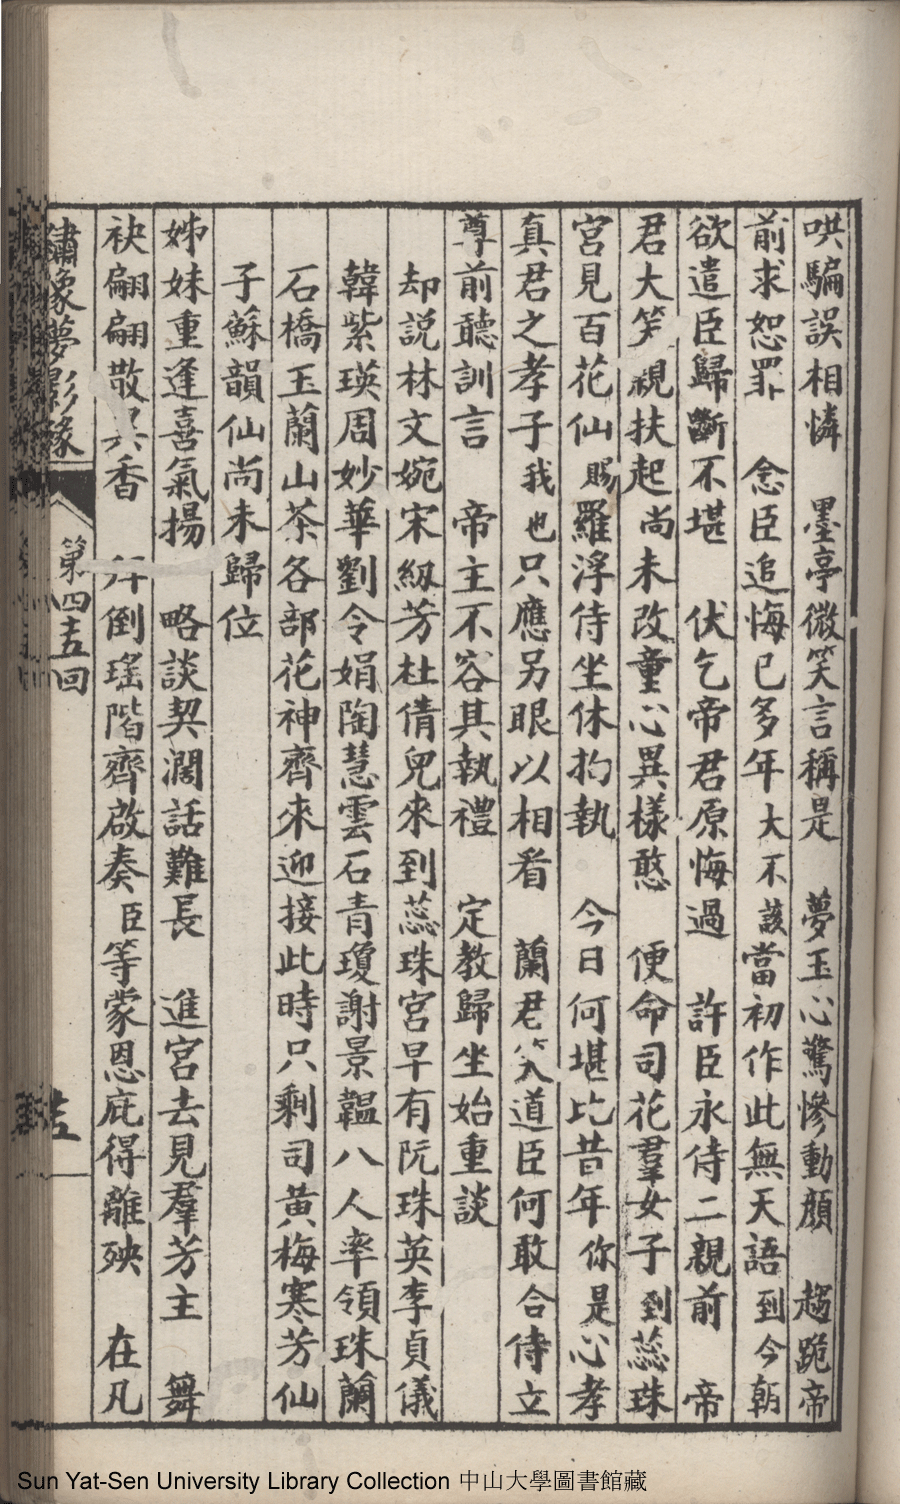 哄騙誤相憐　墨亭微笑言稱是　夢玉心驚慘動顏　趨跪帝
前求恕罪　念臣追悔已多年　大不該當初作此無天語　到今朝
欲遣臣歸斷不堪　伏乞帝君原悔過　許臣永侍二親前　帝
君大笑親扶起　尚未改童心異樣憨　便命司花羣女子　到蕊珠
宮見百花仙　賜羅浮侍坐休拘執　今日何堪比昔年　你是心孝
真君之孝子　我也只應另眼以相看　蘭君笑道臣何敢　合侍立
尊前聽訓言　帝主不容其執禮　定教歸坐始重談
却説林文婉宋紉芳杜倩兒來到蕊珠宮早有阮珠英李貞儀
韓紫瑛周妙華劉令娟陶慧雲石青瓊謝景韞八人率領珠蘭
石橋玉蘭山茶各部花神齊來迎接此時只剩司黃梅寒芳仙
子蘇韻仙尚未歸位
姊妹重逢喜氣揚　略談契濶話難長　進宮去見羣芳主　舞
袂翩翩散異香　拜倒瑤階齊啟奏　臣等蒙恩庇得離殃　在凡
繡像夢影緣　第四十五回
Sun Yat-Sen University Library Collection 中山大學圖書館藏